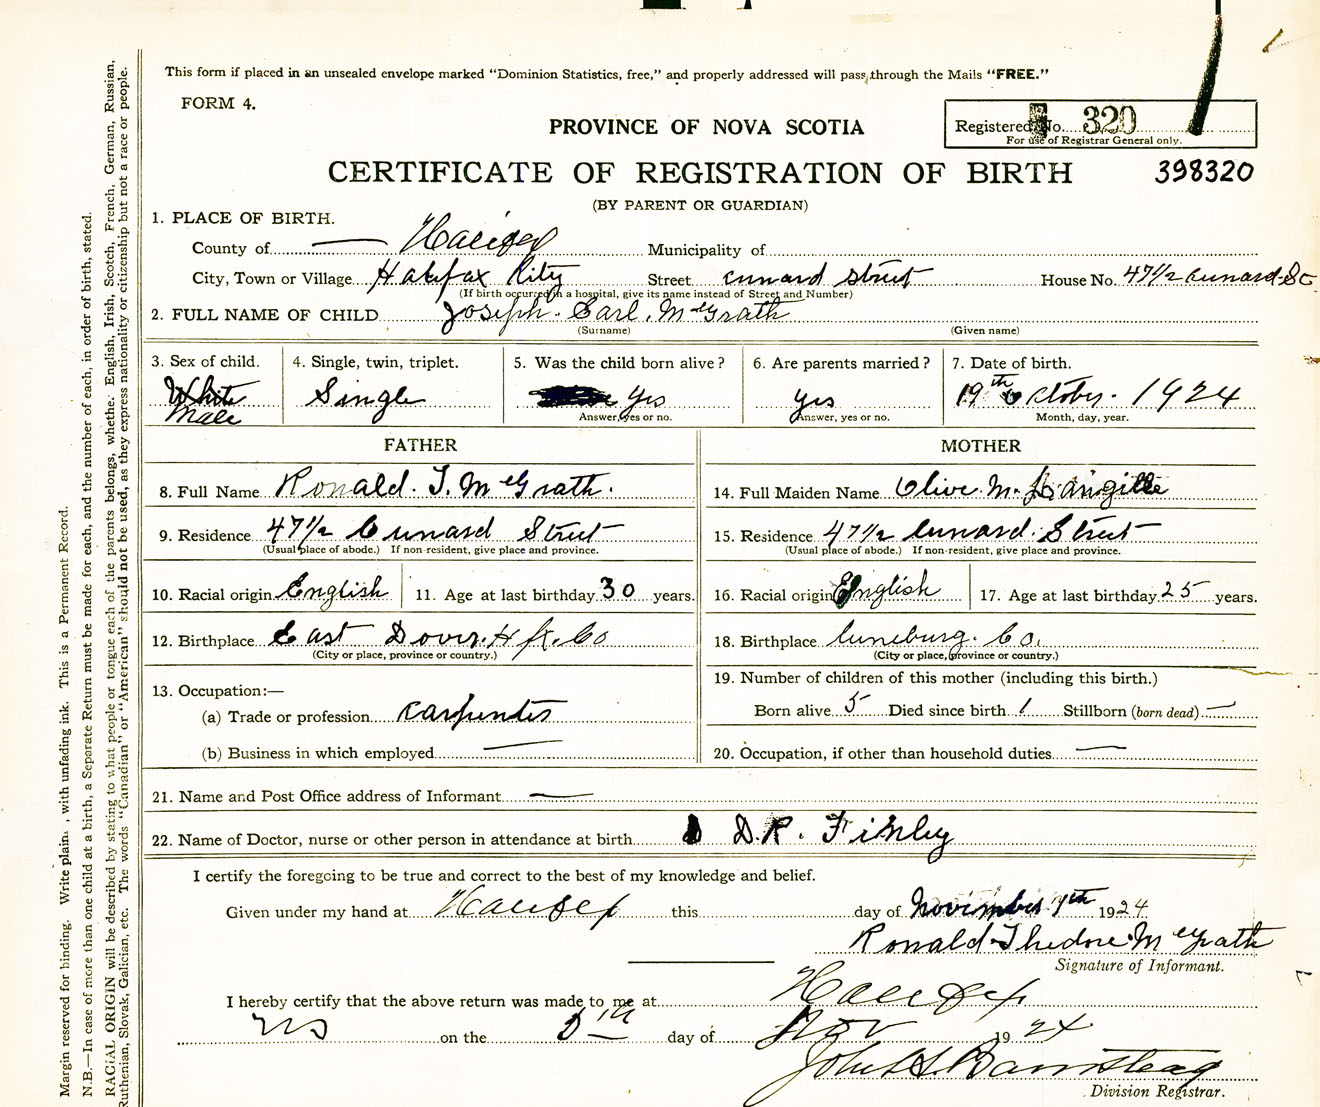 This form if placed in an unsealed envelope marked "Dominion Statistics, free," and properly addressed will pass through the Mails "FREE."
FORM 4.
PROVINCE OF NOVA SCOTIA
Registered No. 320
For use of Registrar General only.
CERTIFICATE OF REGISTRATION OF BIRTH 398320
(BY PARENT OR GUARDIAN)
1. PLACE OF BIRTH.
County of Halifax Municipality of
City, Town or Village Halifax City Street Cunard Street House No. 47 1/2 Cunard St
(If birth occurred in a hospital, give its name instead of Street and Number)
2. FULL NAME OF CHILD Joseph. Earl. McGrath
(Surname) (Given name)
3. Sex of child. 4. Single, twin, triplet. 5. Was the child born alive? 6. Are parents married? 7. Date of birth.
White Male Single Yes yes 19th October. 1924
Answer, yes or no. Answer, yes or no. Month, day, year.
FATHER MOTHER
8. Full Name Ronald. T. McGrath. 14. Full Maiden Name Olive. M. Langille
9. Residence 47 1/2 Cunard Street 15. Residence 47 1/2 Cunard. Street
(Usual place of abode.) If non-resident, give place and province. (Usual place of abode.) If non-resident, give place and province.
10. Racial origin English 11. Age at last birthday 30 years. 16. Racial origin English 17. Age at last birthday 25 years.
12. Birthplace East Dover. Hfx. Co 18. Birthplace Luneburg. Co.
(City or place, province or country.) (City or place, province or country.)
13. Occupation:— 19. Number of children of this mother (including this birth.)
(a) Trade or profession carpenter Born alive 5 Died since birth 1 Stillborn (born dead) —
(b) Business in which employed — 20. Occupation, if other than household duties —
21. Name and Post Office address of Informant —
22. Name of Doctor, nurse or other person in attendance at birth D.R. Finley
I certify the foregoing to be true and correct to the best of my knowledge and belief.
Given under my hand at Halifax this day of November 7th 1924
Ronald Thedore McGrath
Signature of Informant.
I hereby certify that the above return was made to me at Halifax
NS on the 8th day of Nov 1924
John H. Barnstead
Division Registrar.
Margin reserved for binding. Write plain , with unfading ink. This is a Permanent Record.
N.B.—In case of more than one child at a birth, a Separate Return must be made for each, and the number of each, in order of birth, stated.
RACIAL ORIGIN will be described by stating to what people or tongue each of the parents belongs, whether English, Irish, Scotch, French, German, Russian,
Ruthenian, Slovak, Galician, etc. The words "Canadian" or "American" should not be used, as they express nationality or citizenship but not a race or people.